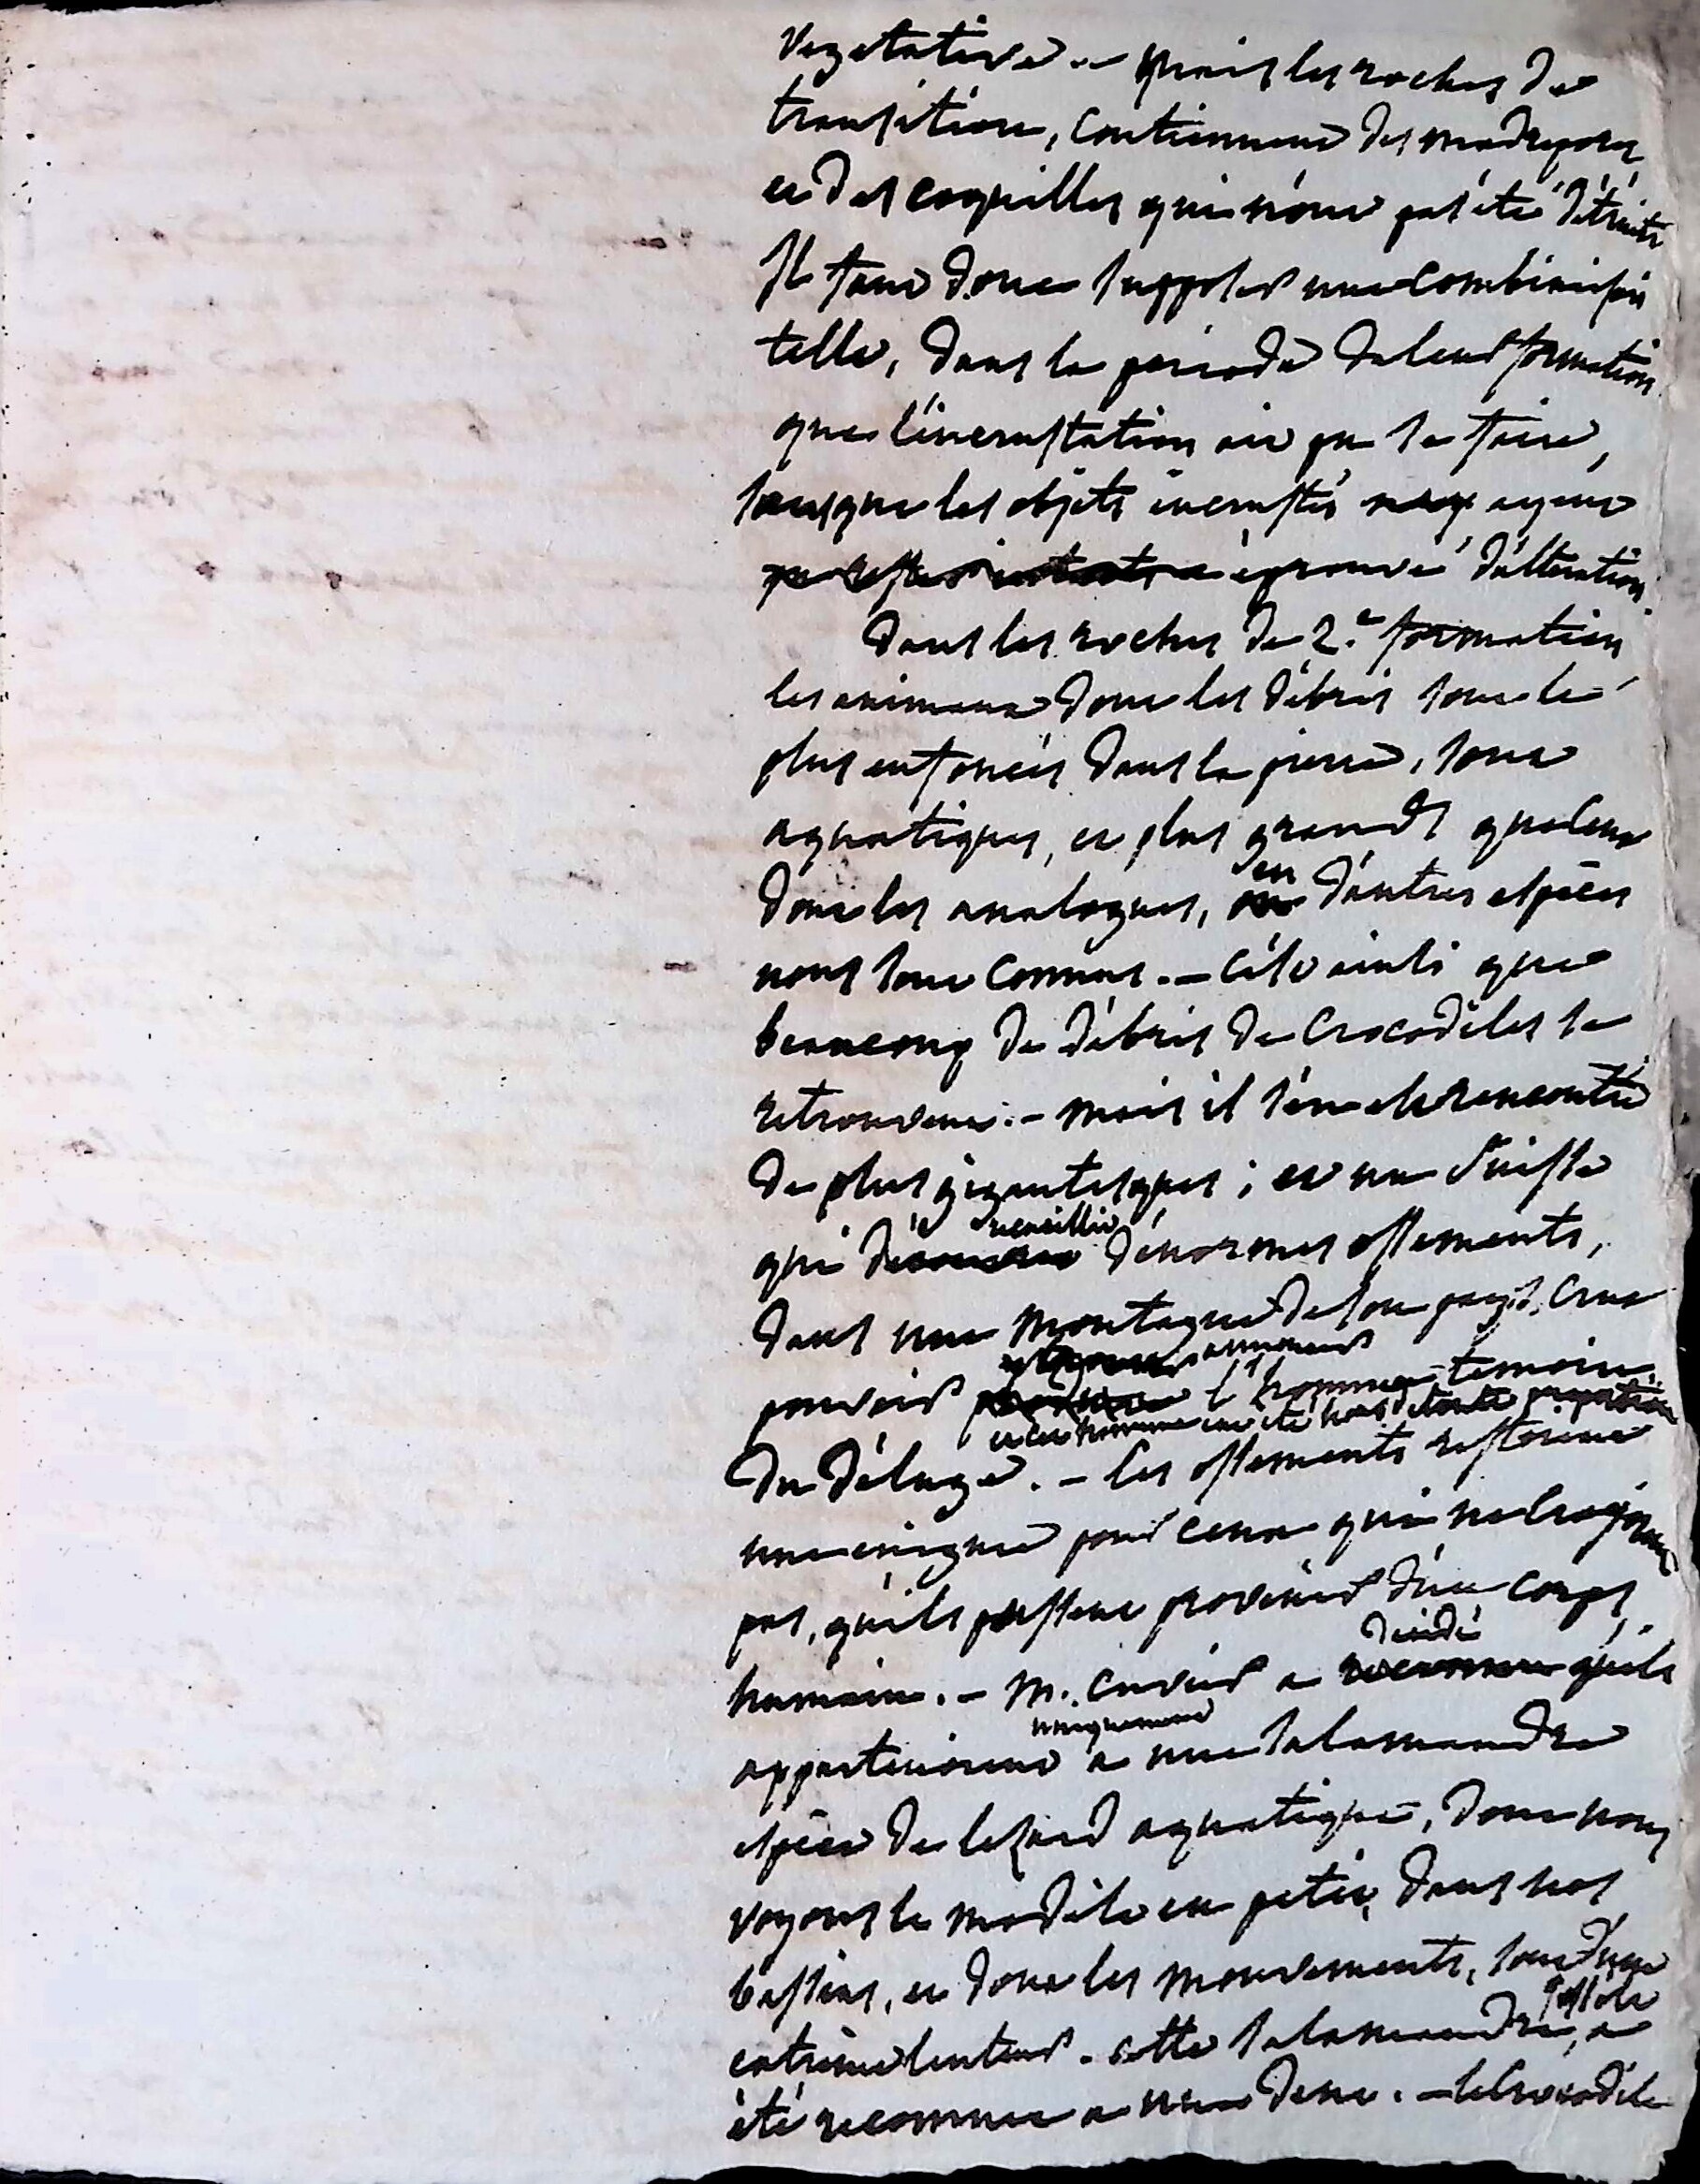 vegetative. — mais les roches de
transition, contiennent des madrepores
et des coquilles qui n'ont pas été détruits
Il faut donc supposer une combinaison
telle, dans la periode de leur formation
que l'incrustation ait pu se faire,
sans que les objets incrustés ayent
éprouvé d'altération.
Dans les roches de 2.e formation
les animaux dont les débris sont le
plus enfoncés dans la pierre, sont
aquatiques, et plus grands que ceux
dont les analogues, en d'autres espèces
nous sont connus. — C'est ainsi que
beaucoup de débris de Crocodiles se
retrouvent. — mais il s'en est rencontré
de plus gigantesques ; et un Suisse
recueillit
qui d'énormes ossements,
dans une montagne de son pays, crut
annoncer
pouvoir l'homme temoin
et cet homme eut été hors de toute proportion
du Déluge. — les ossements restoient
une enigme pour ceux qui ne croyoient
pas, qu'ils pussent provenir d'un corps
décidé
humain. — M. Cuvier a qu'ils
uniquement
appartenoient à une salamandre
espèce de lesard aquatique, dont nous
voyons le modèle en petit, dans nos
bassins, et dont les mouvements, sont d'une
extrême lenteur. cette salamandre fossile, a
été reconnue a une dent. — le Crocodile